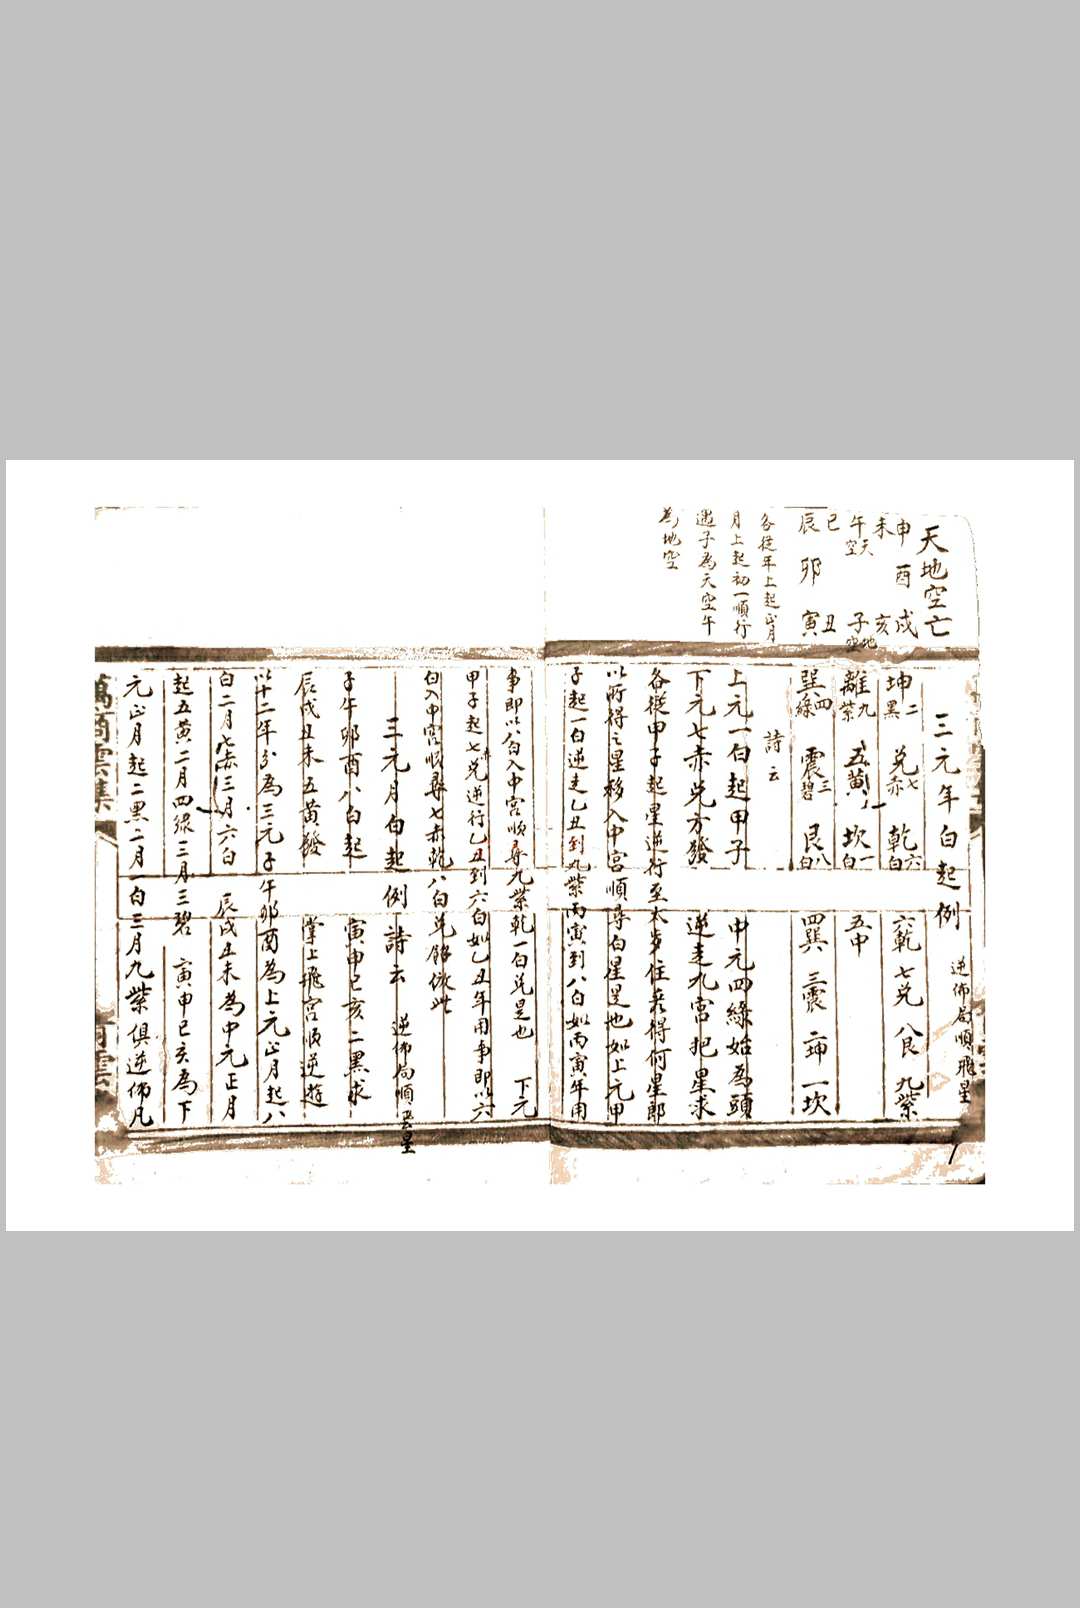 天地空亡
申 酉 戌
未 亥
午天空 子地空
巳 丑
辰 卯 寅
各從年上起正月
月上起初一順行
遇子為天空午
為地空
三元年白起例 逆佈局順飛星
坤二黑 兌七赤 乾六白 六乾 七兌 八艮 九紫
離九紫 五黃 坎一白 五中
巽四綠 震三碧 艮八白 四巽 三震 二坤 一坎
詩云
上元一白起甲子 中元四綠始為頭
下元七赤兌方發 逆走九宮把星求
各從甲子起星逆行至太歲住看得何星郎
以所得之星移入中宮順尋白星是也如上元甲
子起一白逆走乙丑到九紫丙寅到八白如丙寅年用
事即以八白入中宮順尋九紫乾一白兌是也 下元
甲子起七兌逆行乙丑到六白如乙丑年用事即以六
白入中宮順尋七赤乾八白兌餘倣此
三元月白起例詩云 逆佈局順飛星
子午卯酉八白起 寅申巳亥二黑求
辰戌丑未五黃發 掌上飛宮順逆遊
以十二年分為三元子午卯酉為上元正月起八
白二月七赤三月六白 辰戌丑未為中元正月
起五黃二月四綠三月三碧 寅申巳亥為下
元正月起二黑二月一白三月九紫俱逆佈凡
萬商雲集